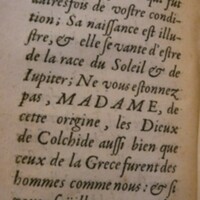 autresfois de vostre condi-
tion; Sa naissance est illu-
stre, & elle se vante d'estre
de la race du Soleil & de
Iupiter; Ne vous estonnez
pas, MADAME, de
cette origine, les Dieux
de Colchide aussi bien que
ceux de la Grece furent des
hommes comme nous: & si